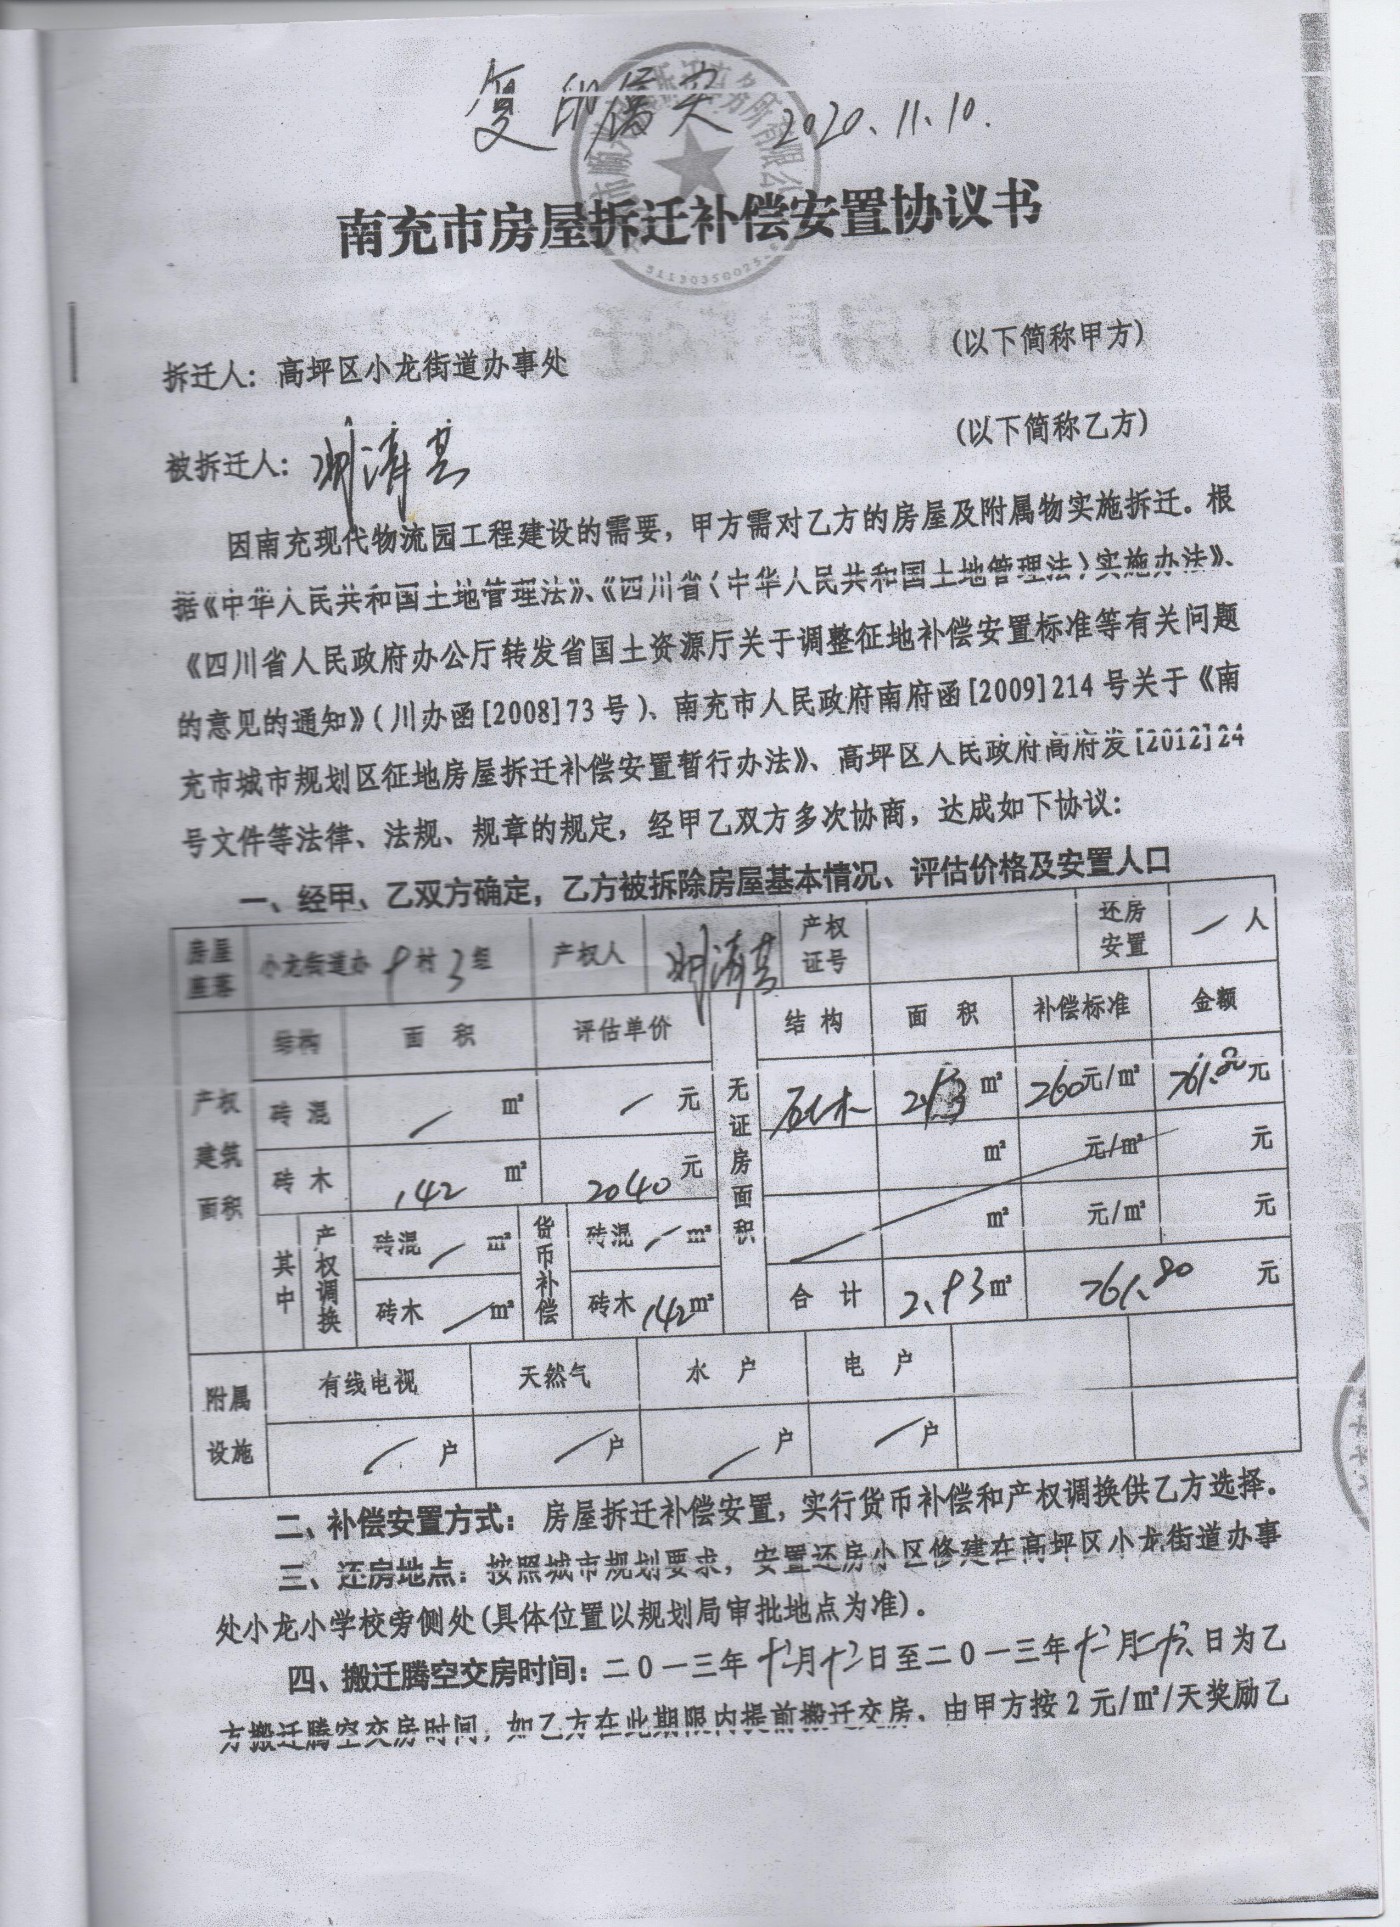 复印属实 2020.11.10.
务所有限公
5113035002
南充市房屋拆迁补偿安置协议书
拆迁人：高坪区小龙街道办事处 （以下简称甲方）
被拆迁人： （以下简称乙方）
因南充现代物流园工程建设的需要，甲方需对乙方的房屋及附属物实施拆迁。根
据《中华人民共和国土地管理法》、《四川省〈中华人民共和国土地管理法〉实施办法》、
《四川省人民政府办公厅转发省国土资源厅关于调整征地补偿安置标准等有关问题
的意见的通知》（川办函[2008]73号）、南充市人民政府南府函[2009]214号关于《南
充市城市规划区征地房屋拆迁补偿安置暂行办法》、高坪区人民政府高府发[2012]24
号文件等法律、法规、规章的规定，经甲乙双方多次协商，达成如下协议：
一、经甲、乙双方确定，乙方被拆除房屋基本情况、评估价格及安置人口
房屋座落 小龙街道办 村3组 产权人 产权证号 还房安置 / 人
产权建筑面积 结构 面积 评估单价 无证房面积 结构 面积 补偿标准 金额
砖混 / m² / 元 石木 2.93 m² 260元/m² 761.80元
砖木 142 m² 2040元 m² 元/m² 元
其中 产权调换 砖混 / m² 货币补偿 砖混 / m² m² 元/m² 元
砖木 / m² 砖木 142m² 合计 2.93m² 761.80 元
附属设施 有线电视 天然气 水户 电户
/ 户 / 户 / 户 / 户
二、补偿安置方式：房屋拆迁补偿安置，实行货币补偿和产权调换供乙方选择。
三、还房地点：按照城市规划要求，安置还房小区修建在高坪区小龙街道办事
处小龙小学校旁侧处（具体位置以规划局审批地点为准）。
四、搬迁腾空交房时间：二0一三年十二月十二日至二0一三年十二月二十六日为乙
方搬迁腾空交房时间，如乙方在此期限内提前搬迁交房，由甲方按2元/m²/天奖励乙